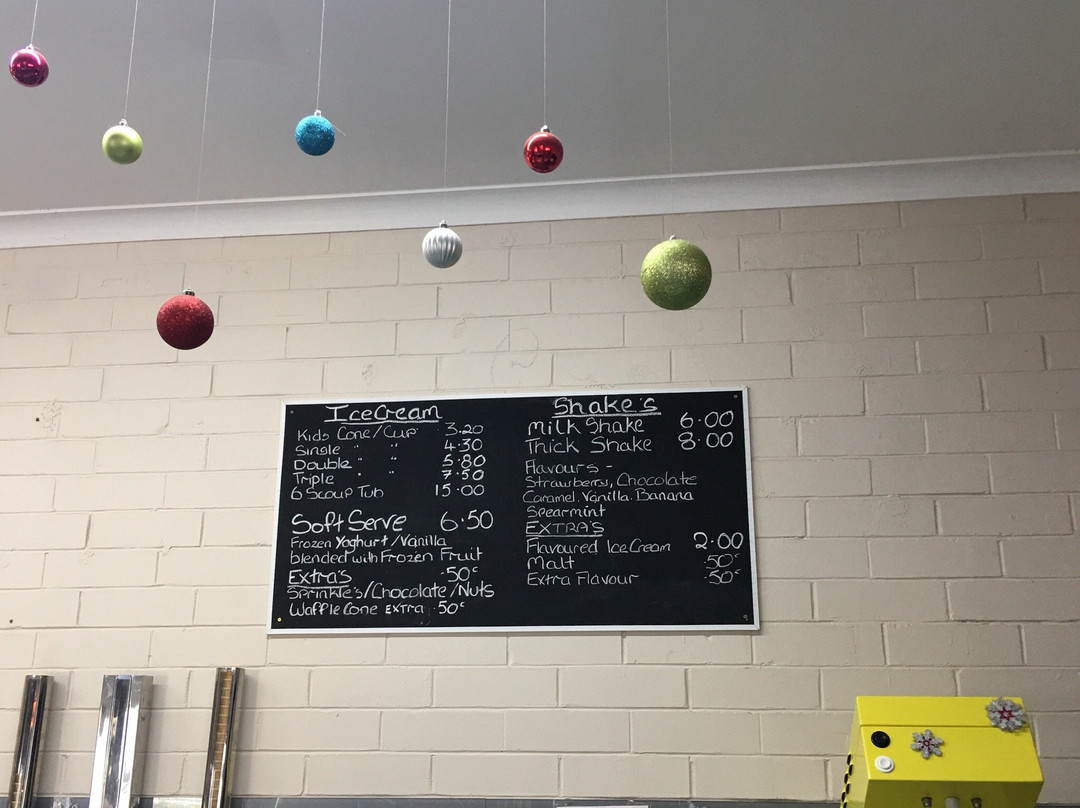 IceCream
Kids Cone/Cup 3.20
Single " " 4.30
Double " " 5.80
Triple " " 7.50
6 Scoup Tub 15.00
Soft Serve 6.50
Frozen Yoghurt/Vanilla
blended with Frozen Fruit
Extra's .50c
Sprinkle's/Chocolate/Nuts
Waffle Cone EXTRA .50c
Shake's
Milk Shake 6.00
Thick Shake 8.00
Flavours -
Strawberry, Chocolate
Caramel. Vanilla. Banana
Spearmint
EXTRA'S
Flavoured IceCream 2.00
Malt .50c
Extra Flavour .50c